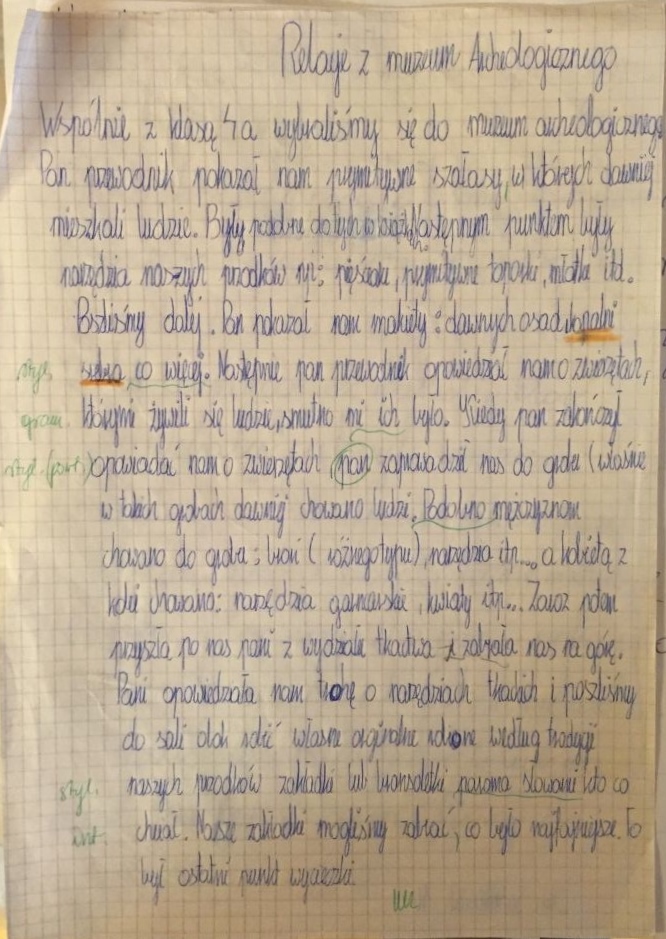 Relacje z muzeum Archeologicznego
Wspólnie z klasą 4a wybraliśmy się do muzeum archeologicznego
Pan przewodnik pokazał nam prymitywne szałasy, w których dawniej
mieszkali ludzie. Były podobne do tych w książkach. Następnym punktem były
narzędzia naszych przodków np: pięściaki, prymitywne toporki, młotki itd.
Poszliśmy dalej. Pan pokazał nam makiety: dawnych osad
styl. co więcej. Następnie pan przewodnik opowiedział nam o zwierzętach,
gram. którymi żywili się ludzie, smutno mi ich było. Kiedy pan zakończył
styl. (powt.) opowiadać nam o zwierzętach pan zaprowadził nas do grobu (właśnie
w takich grobach dawniej chowano ludzi. Podobno mężczyznom
chowano do grobu: broń (różnego typu), narzędzia itp... a kobietą z
kolei chowano: narzędzia garncarskie, kwiaty itp... Zaraz potem
przyszła po nas pani z wydziału tkactwa i zabrała nas na górę.
Pani opowiedziała nam trohę o narzędziach tkackich i poszliśmy
do sali obok robić własne orginalne robione według tradycji
styl. naszych przodków zakładki lub bransoletki paroma słowami kto co
int. chciał. Nasze zakładki mogliśmy zabrać, co było najfajniejsze. To
był ostatni punkt wycieczki.